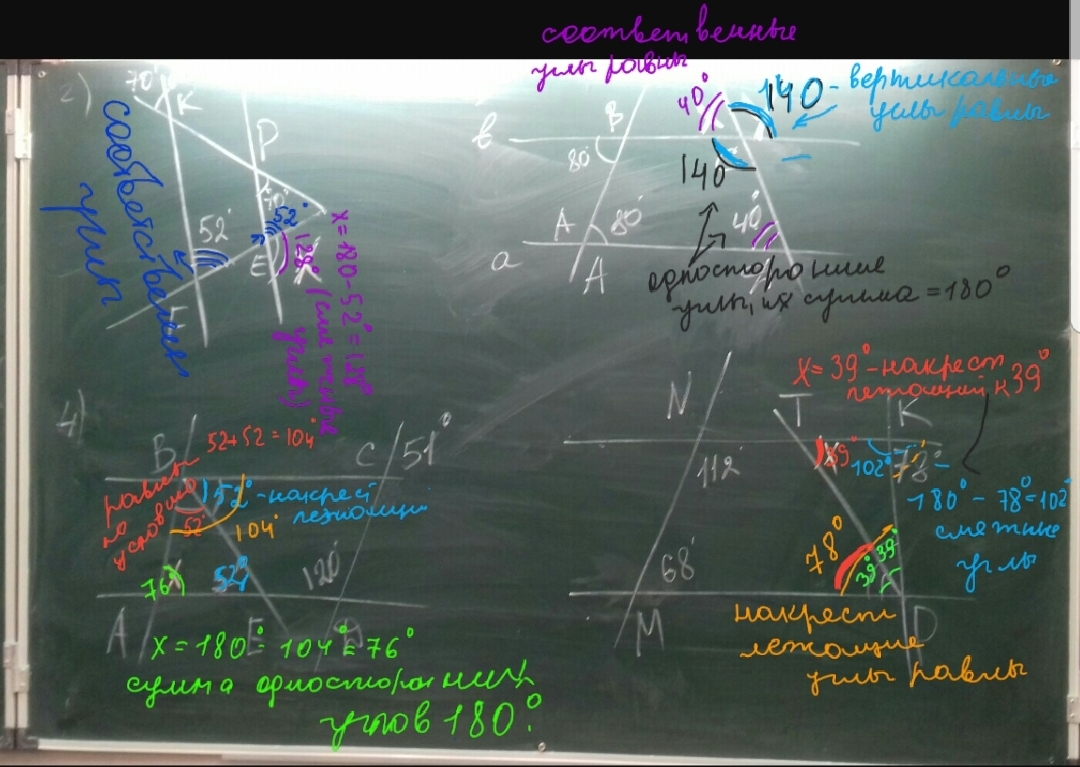 соответственные
углы равны
2)
70°
K
P
70°
52°
52°
E
128° (смежные
углы)
x = 180 - 52° = 128°
соответственные
в
B
80°
40°
140 - вертикальные
углы равны
140
A
80°
40°
a
A
односторонние
углы, их сумма = 180°
4)
B
52+52 = 104°
C
51°
равны
по
условию
52° - накрест
лежащие
52°
104°
76°
52°
120°
A
E
D
x = 180° - 104° = 76°
сумма односторонних
углов 180°
N
112°
68°
M
x = 39° - накрест
лежащий к 39°
T
K
39°
102°
78°
180° - 78° = 102°
смежные
углы
78°
39°
39°
накрест
лежащие
углы равны
D